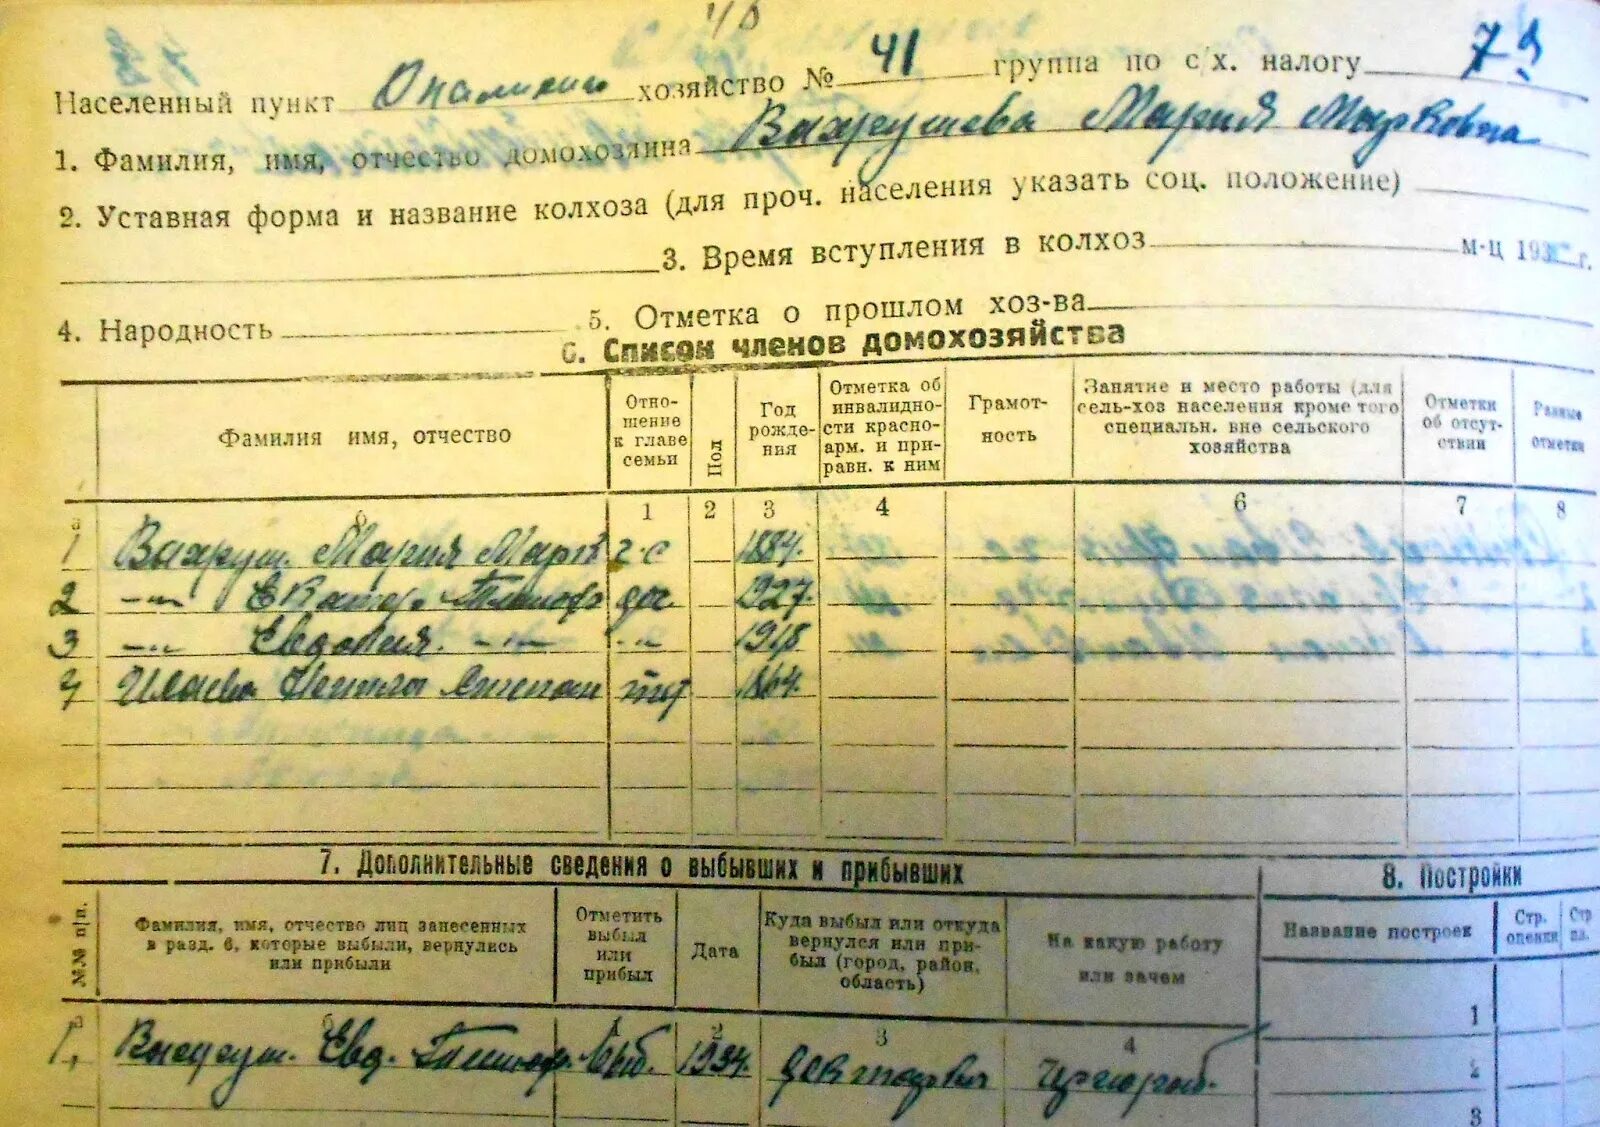 40
Населенный пункт Опалихино хозяйство № 41 группа по с/х. налогу 7
1. Фамилия, имя, отчество домохозяина Вахрушева Мария Марковна
2. Уставная форма и название колхоза (для проч. населения указать соц. положение)
3. Время вступления в колхоз м-ц 193 г.
4. Народность 5. Отметка о прошлом хоз-ва
6. Список членов домохозяйства
Фамилия имя, отчество
Отно-
шение
к главе
семьи
Пол
Год
рожде-
ния
Отметка об
инвалидно-
сти красно-
арм. и при-
равн. к ним
Грамот-
ность
Занятие и место работы (для
сель-хоз населения кроме того
специальн. вне сельского
хозяйства
Отметки
об отсут-
ствии
Разные
отметки
а б 1 2 3 4 6 7 8
1 Вахруш. Мария Марк г-с 1884.
2 -"- Екатер. доч. 1927.
3 -"- Евдокия. -"- -"- 1918
4 1864.
7. Дополнительные сведения о выбывших и прибывших
№№ п/п.
Фамилия, имя, отчество лиц занесенных
в разд. 6, которые выбыли, вернулись
или прибыли
Отметить
выбыл
или
прибыл
Дата
Куда выбыл или откуда
вернулся или при-
был (город, район,
область)
На какую работу
или зачем
8. Постройки
Название построек
Стр.
оценки
Стр
пл.
а б 1 2 3 4
1
1, Вахруш. Евд. выб. 1934.
2
3